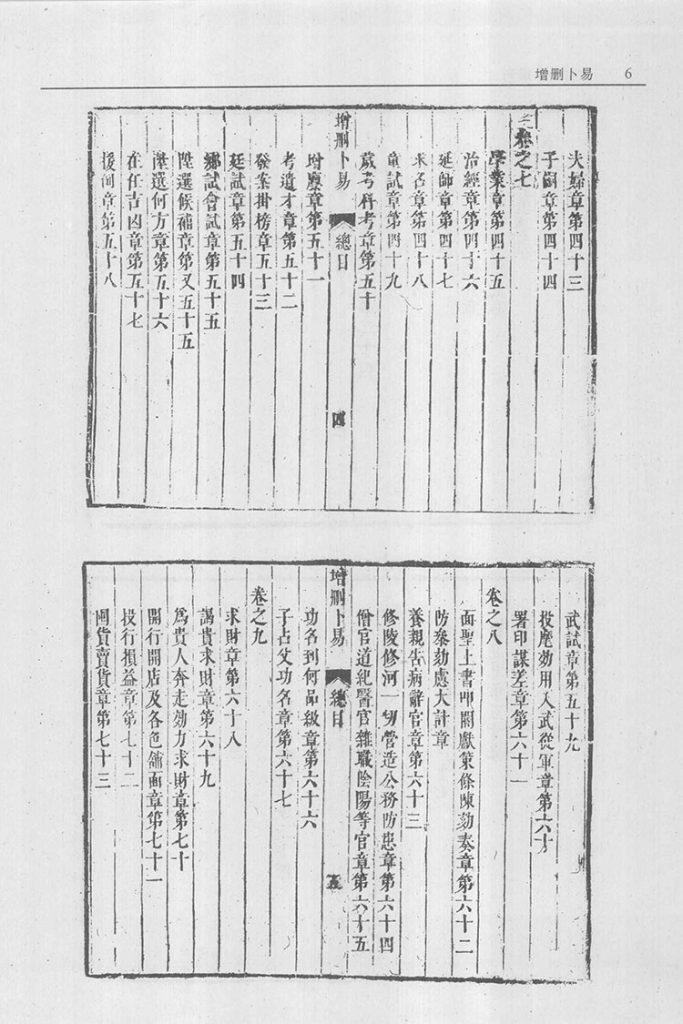 增刪卜易 6
夫婦章第四十三
子嗣章第四十四
卷之七
學業章第四十五
治經章第四十六
延師章第四十七
求名章第四十八
童試章第四十九
歲考科考章第五十
增刪卜易 總目 四
增廩章第五十一
考遺才章第五十二
發案掛榜章五十三
廷試章第五十四
鄉試會試章第五十五
陞選候補章第又五十五
陞選何方章第五十六
在任吉凶章第五十七
援例章第五十八
武試章第五十九
投麾効用入武從軍章第六十
署印謀差章第六十一
卷之八
面聖上書叩閽獻策條陳劾奏章第六十二
防叅劾慮大計章
養親告病辭官章第六十三
修陵修河一切營造公務防患章第六十四
僧官道紀醫官雜職陰陽等官章第六十五
增刪卜易 總目 五
功名到何品級章第六十六
子占父功名章第六十七
卷之九
求財章第六十八
謁貴求財章第六十九
為貴人奔走効力求財章第七十
開行開店及各色舖面章第七十一
投行損益章第七十二
囤貨賣貨章第七十三